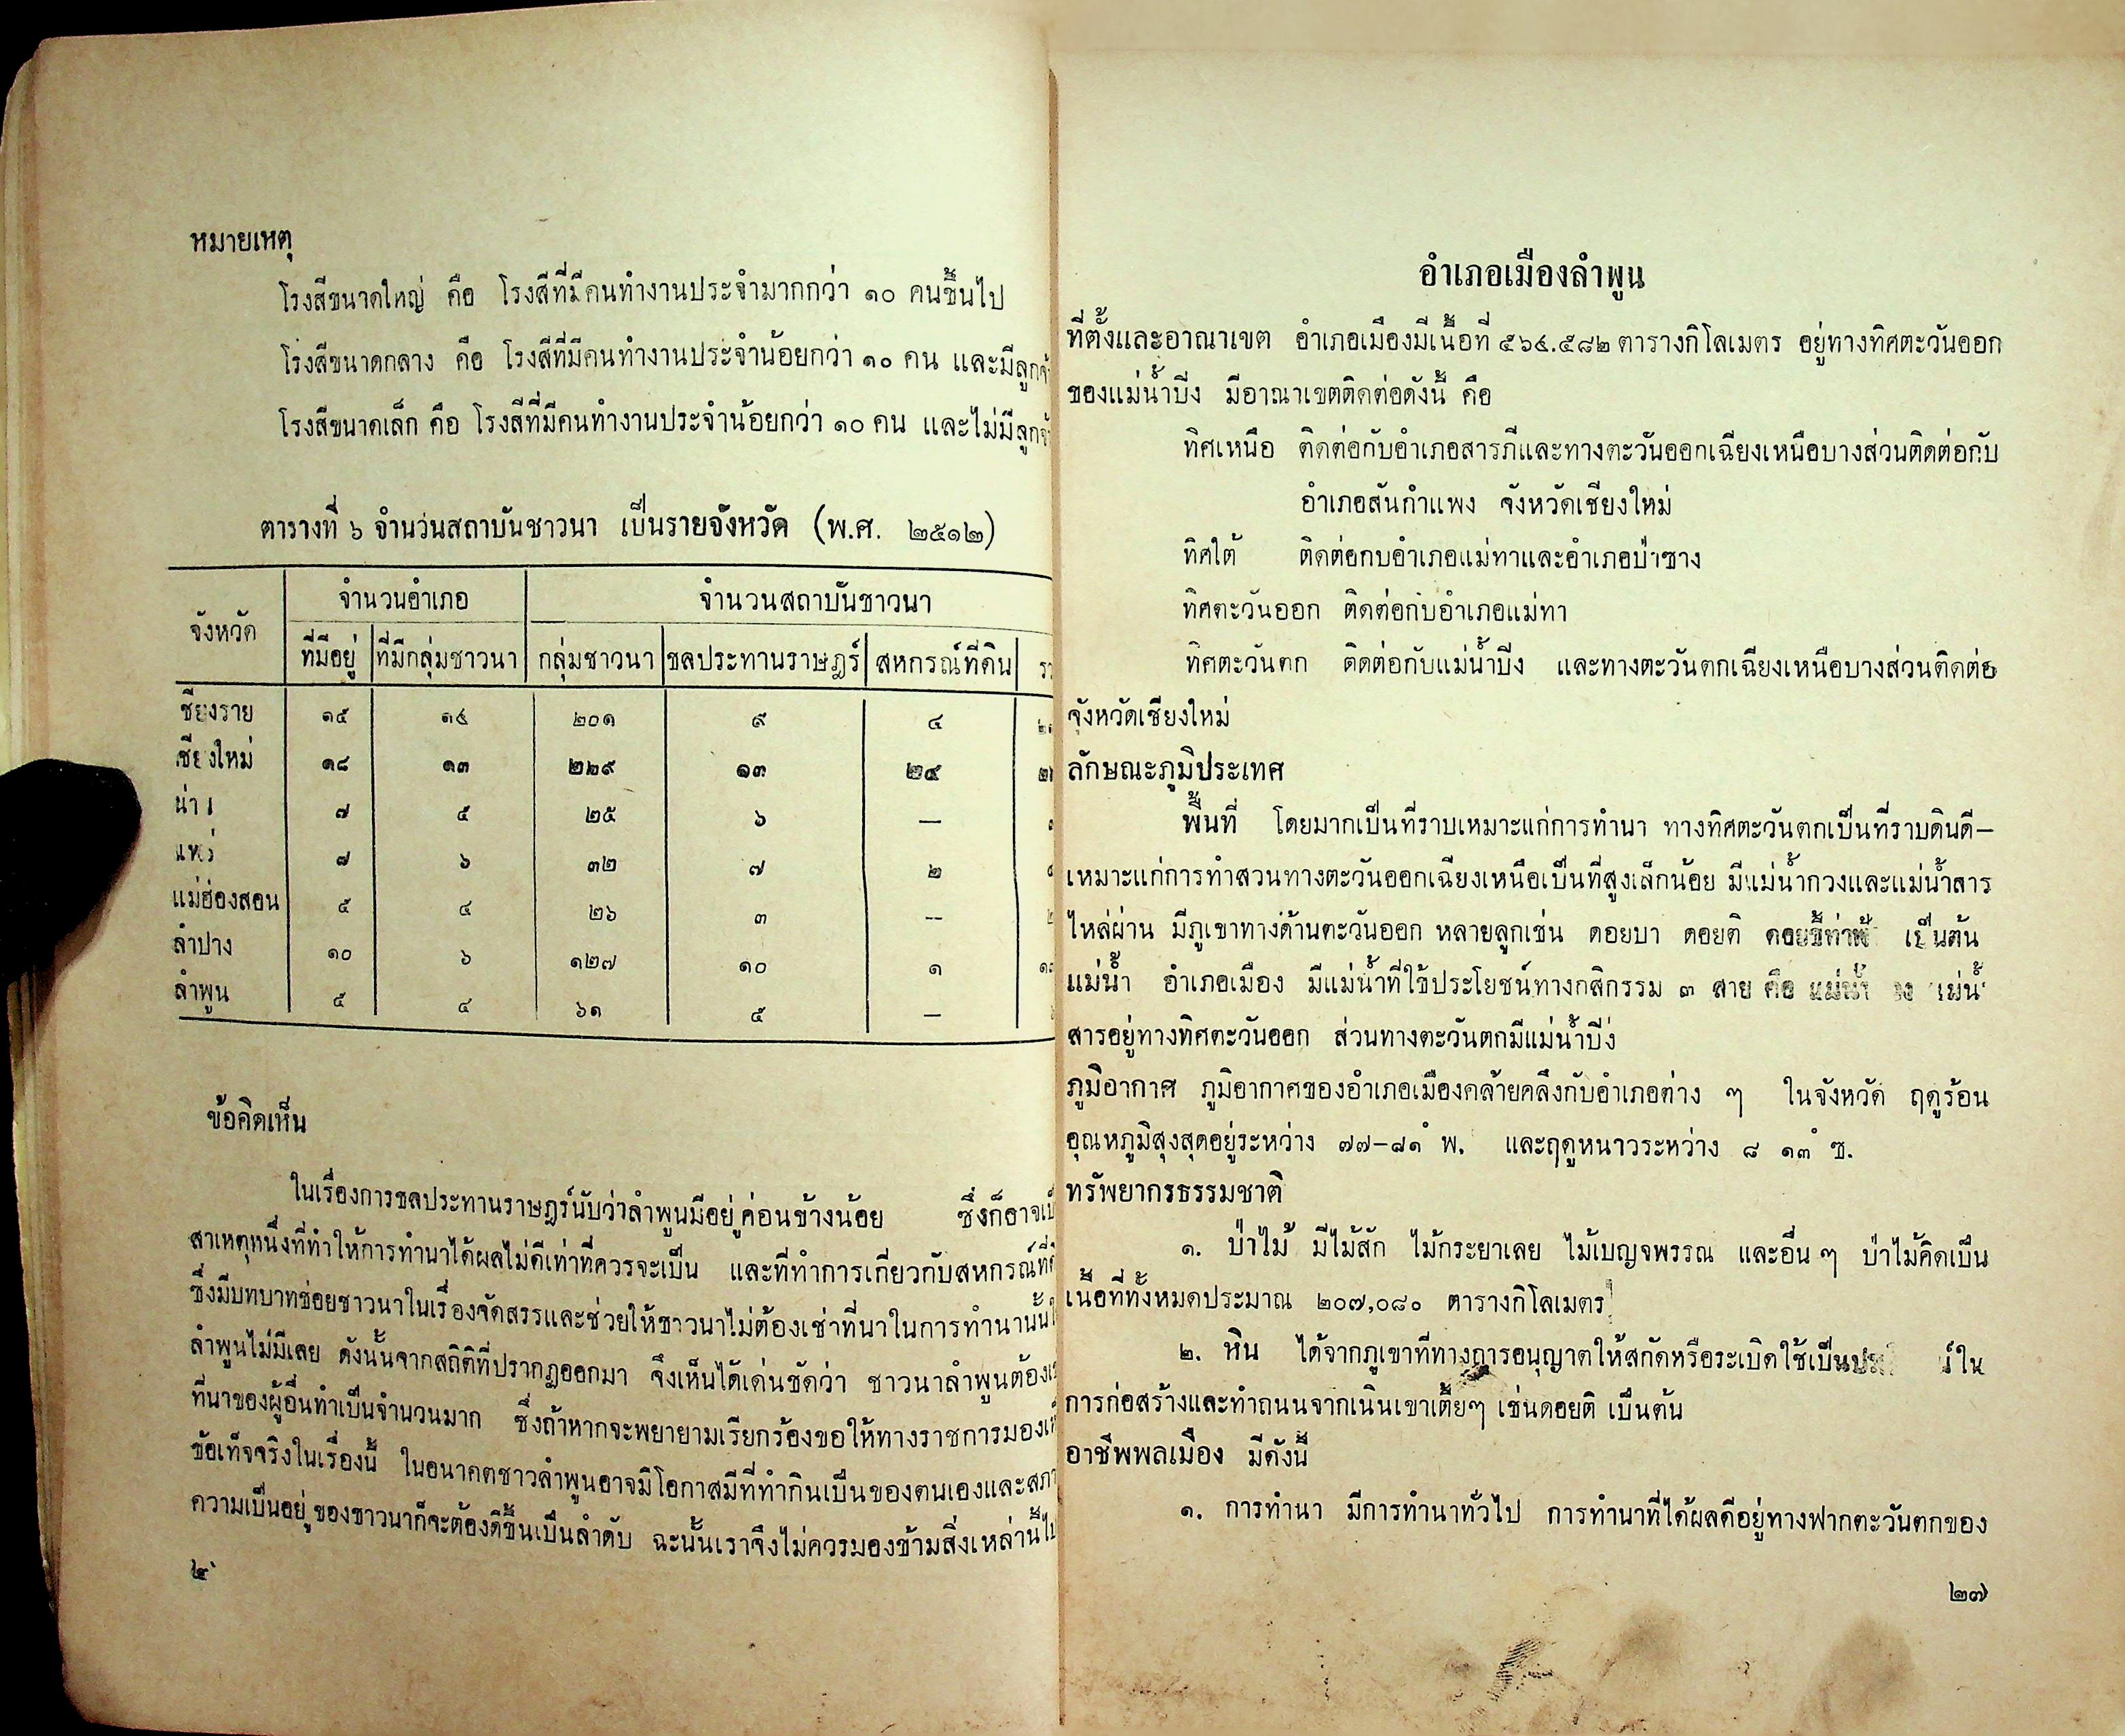 หมายเหตุ
โรงสีขนาดใหญ่ คือ โรงสีที่มีคนทำงานประจำมากกว่า ๑๐ คนขึ้นไป
โรงสีขนาดกลาง คือ โรงสีที่มีคนทำงานประจำน้อยกว่า ๑๐ คน และมีลูกจ้
โรงสีขนาดเล็ก คือ โรงสีที่มีคนทำงานประจำน้อยกว่า ๑๐ คน และไม่มีลูกจ้
ตารางที่ ๖ จำนว่นสถาบันชาวนา เป็นรายจังหวัด (พ.ศ. ๒๕๑๒)
จังหวัด จำนวนอำเภอ จำนวนสถาบันชาวนา
ที่มีอยู่ ที่มีกลุ่มชาวนา กลุ่มชาวนา ชลประทานราษฎร์ สหกรณ์ที่ดิน
ชียงราย ๑๕ ๑๔ ๒๐๑ ๙ ๔
เชียงใหม่ ๑๘ ๑๓ ๒๒๙ ๑๓ ๒๔
น่าน ๗ ๕ ๒๕ ๖ —
แพร่ ๗ ๖ ๓๒ ๗ ๒
แม่ฮ่องสอน ๕ ๔ ๒๖ ๓ —
ลำปาง ๑๐ ๖ ๑๒๗ ๑๐ ๑
ลำพูน ๕ ๔ ๖๑ ๕ —
ข้อคิดเห็น
ในเรื่องการชลประทานราษฎร์นับว่าลำพูนมีอยู่ค่อนข้างน้อย ซึ่งก็อาจเป็
สาเหตุหนึ่งที่ทำให้การทำนาได้ผลไม่ดีเท่าที่ควรจะเป็น และที่ทำการเกี่ยวกับสหกรณ์ที่
ซึ่งมีบทบาทช่อยชาวนาในเรื่องจัดสรรและช่วยให้ชาวนาไม่ต้องเช่าที่นาในการทำนานั้น
ลำพูนไม่มีเลย ดังนั้นจากสถิติที่ปรากฏออกมา จึงเห็นได้เด่นชัดว่า ชาวนาลำพูนต้อง
ที่นาของผู้อื่นทำเป็นจำนวนมาก ซึ่งถ้าหากจะพยายามเรียกร้องขอให้ทางราชการมอง
ข้อเท็จจริงในเรื่องนี้ ในอนาคตชาวลำพูนอาจมีโอกาสมีที่ทำกินเป็นของตนเองและสภา
ความเป็นอยู่ของชาวนาก็จะต้องดีขึ้นเป็นลำดับ ฉะนั้นเราจึงไม่ควรมองข้ามสิ่งเหล่านี้ไป
อำเภอเมืองลำพูน
ที่ตั้งและอาณาเขต อำเภอเมืองมีเนื้อที่ ๕๖๔.๕๘๒ ตารางกิโลเมตร อยู่ทางทิศตะวันออก
ของแม่น้ำปิง มีอาณาเขตติดต่อดังนี้ คือ
ทิศเหนือ ติดต่อกับอำเภอสารภีและทางตะวันออกเฉียงเหนือบางส่วนติดต่อกับ
อำเภอสันกำแพง จังหวัดเชียงใหม่
ทิศใต้ ติดต่อกบอำเภอแม่ทาและอำเภอป่าซาง
ทิศตะวันออก ติดต่อกับอำเภอแม่ทา
ทิศตะวันตก ติดต่อกับแม่น้ำปิง และทางตะวันตกเฉียงเหนือบางส่วนติดต่อ
จังหวัดเชียงใหม่
ลักษณะภูมิประเทศ
พื้นที่ โดยมากเป็นที่ราบเหมาะแก่การทำนา ทางทิศตะวันตกเป็นที่ราบดินดี–
เหมาะแก่การทำสวนทางตะวันออกเฉียงเหนือเป็นที่สูงเล็กน้อย มีแม่น้ำกวงและแม่น้ำสาร
ไหล่ผ่าน มีภูเขาทางด้านตะวันออก หลายลูกเช่น ดอยบา ดอยติ เป็นต้น
แม่น้ำ อำเภอเมือง มีแม่น้ำที่ใช้ประโยชน์ทางกสิกรรม ๓ สาย คือ แม่น้ำ แม่น้ำ
สารอยู่ทางทิศตะวันออก ส่วนทางตะวันตกมีแม่น้ำปิง
ภูมิอากาศ ภูมิอากาศของอำเภอเมืองคล้ายคลึงกับอำเภอต่าง ๆ ในจังหวัด ฤดูร้อน
อุณหภูมิสุงสุดอยู่ระหว่าง ๗๗–๘๑° ฟ. และฤดูหนาวระหว่าง ๘ ๑๓° ซ.
ทรัพยากรธรรมชาติ
๑. ป่าไม้ มีไม้สัก ไม้กระยาเลย ไม้เบญจพรรณ และอื่น ๆ ป่าไม้คิดเป็น
เนื้อที่ทั้งหมดประมาณ ๒๐๗,๐๘๐ ตารางกิโลเมตร
๒. หิน ได้จากภูเขาที่ทางการอนุญาตให้สกัดหรือระเบิดใช้เป็น ใน
การก่อสร้างและทำถนนจากเนินเขาเตี้ยๆ เช่นดอยติ เป็นต้น
อาชีพพลเมือง มีดังนี้
๑. การทำนา มีการทำนาทั่วไป การทำนาที่ได้ผลดีอยู่ทางฟากตะวันตกของ
๒๗